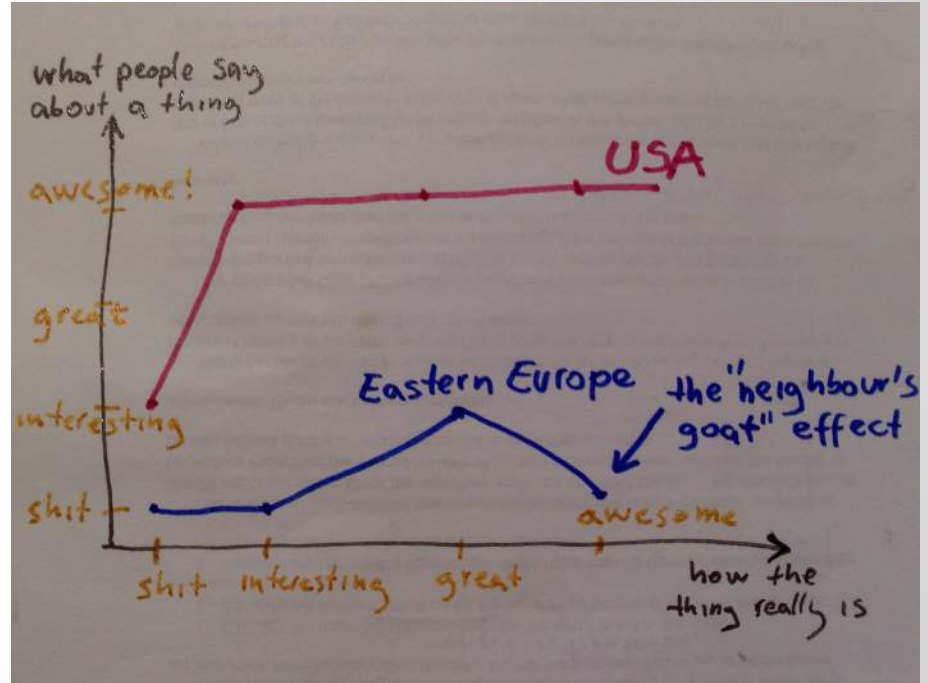 what people say
about a thing
awesome!
great
interesting
shit
USA
Eastern Europe
the "neighbour's
goat" effect
shit interesting great awesome
how the
thing really is